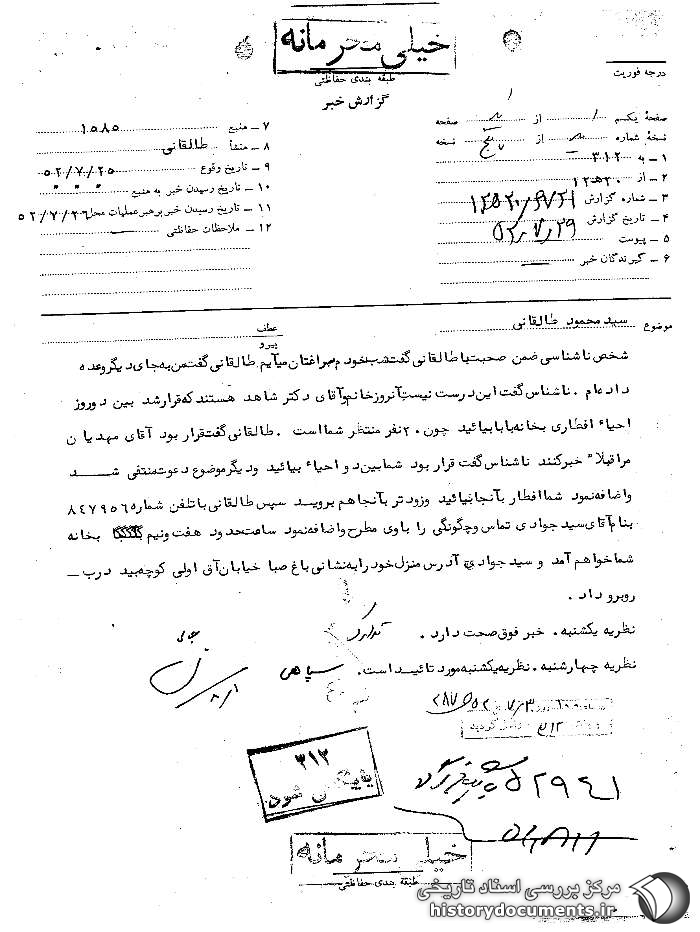 خیلی محرمانه
طبقه بندی حفاظتی
گزارش خبر
درجه فوریت
صفحهٔ یکم از صفحه
نسخهٔ شماره از پنج نسخه
۱ ـ به ۳۱۲
۲ ـ از ۲۰ ه ۱۲
۳ ـ شماره گزارش
۴ ـ تاریخ گزارش ۵۲/۷/۲۹
۵ ـ پیوست
۶ ـ گیرندگان خبر
۷ ـ منبع ۱۵۸۵
۸ ـ منشأ طالقانی
۹ ـ تاریخ وقوع ۵۲/۷/۲۵
۱۰ ـ تاریخ رسیدن خبر به منبع
۱۱ ـ تاریخ رسیدن خبر برهبر عملیات محل ۵۲/۷/۲۶
۱۲ ـ ملاحظات حفاظتی
موضوع سید محمود طالقانی
عطف
پیرو
شخص ناشناسی ضمن صحبت با طالقانی گفت شب خودم سراغتان میآیم طالقانی گفت من به جای دیگر وعده
داده ام . ناشناس گفت این درست نیست آنروز خانم آقای دکتر شاهد هستند که قرار شد بین دو روز
احیاء افطاری بخانه بابا بیائید چون ۲۰ نفر منتظر شما است . طالقانی گفت قرار بود آقای مهدیان
مرا قبلاً خبر کنند ناشناس گفت قرار بود شما بین دو احیاء بیائید و دیگر موضوع دعوت منتفی شد
و اضافه نمود شما افطار بآنجا بیائید و زودتر بآنجا هم بروید سپس طالقانی با تلفن شماره ۸۴۷۹۵۶
بنام آقای سید جوادی تماس و چگونگی را باوی مطرح و اضافه نمود ساعت حدود هفت و نیم بخانه
شما خواهم آمد و سید جوادی آدرس منزل خود را به نشانی باغ صبا خیابان آق اولی کوچه بید درب ـ
روبرو داد .
نظریه یکشنبه . خبر فوق صحت دارد .
نظریه چهارشنبه . نظریه یکشنبه مورد تائید است .
سپاهی
۳۱۲
بایگانی شود
۵۲۹۴۱
خیلی محرمانه
طبقه بندی حفاظتی
مرکز بررسی اسناد تاریخی
historydocuments.ir